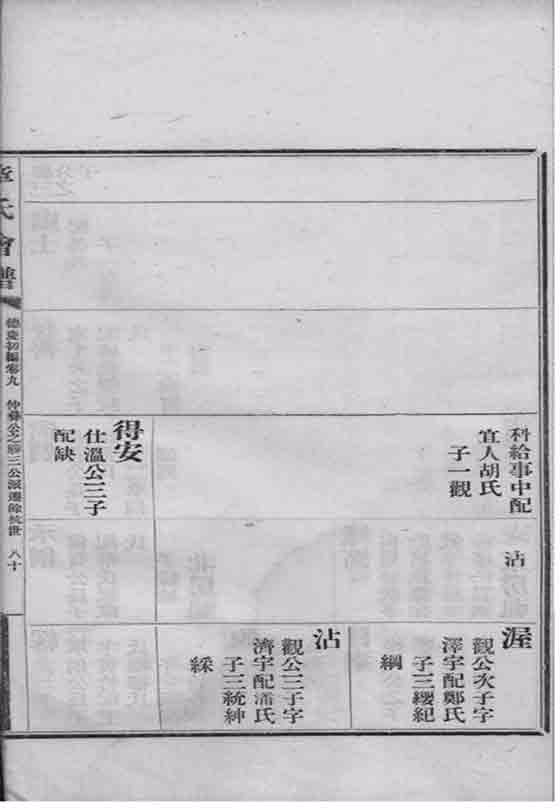 科給事中配
宜人胡氏
子一觀
得安
仕溫公三子
配缺
沾
渥
觀公次子字
澤宇配鄭氏
子三纓紀
綱
沾
觀公三子字
濟宇配潘氏
子三統紳
綵
氏會譜
德慶初編卷九
仲彝公之 二公派遷餘杭世
八十